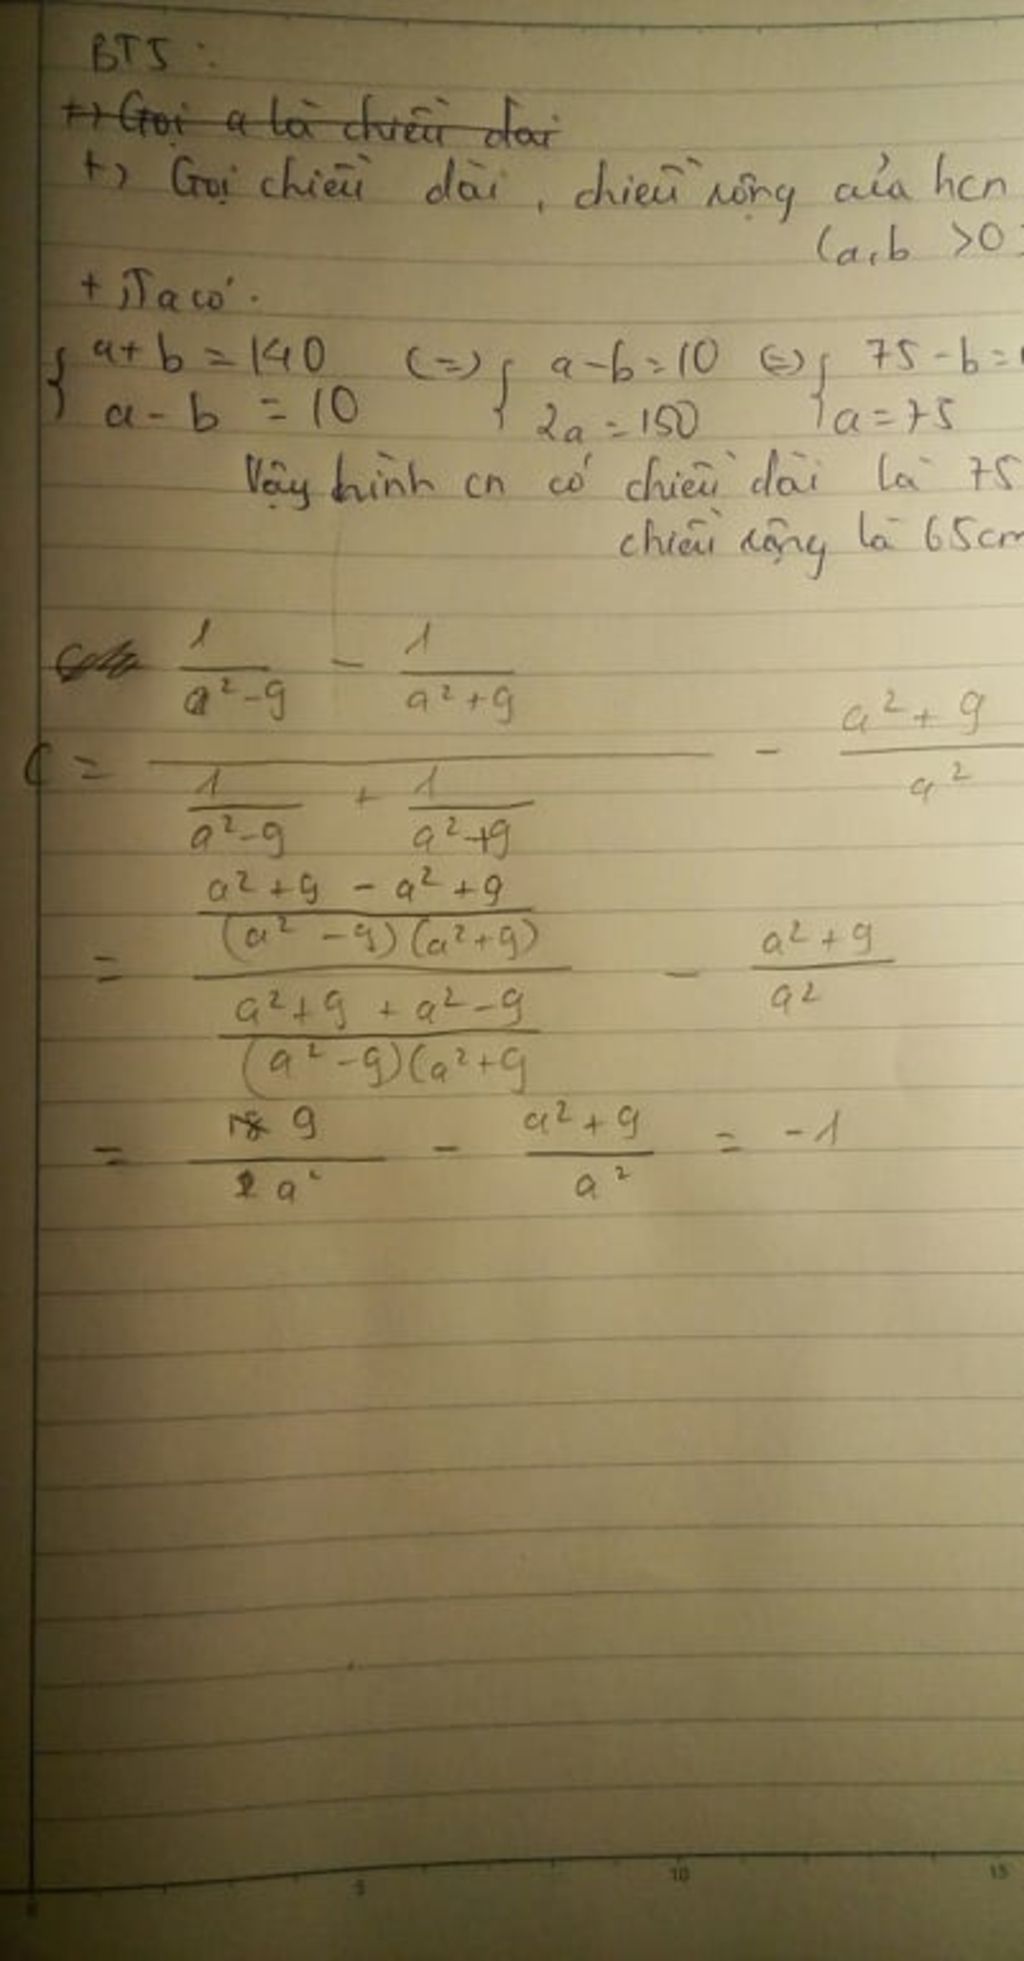 BT5 :
+) Gọi a là chiều dài
+) Gọi chiều dài, chiều rộng của hcn
(a,b >0)
+) Ta có.
{ a+b = 140 (=) { a-b=10 (=) { 75-b=
a-b = 10 2a=150 a=75
Vậy hình cn có chiều dài là 75
chiều rộng là 65cm
1 - 1
a²-9 a²+9
C = - a²+9
a²
1 + 1
a²-9 a²+9
a²+9 - a²+9
(a²-9)(a²+9)
= - a²+9
a²
a²+9 + a²-9
(a²-9)(a²+9
= 18 9 - a²+9 = -1
2 a² a²
5 10 15